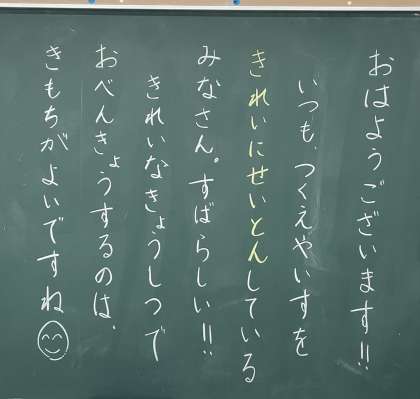 おはようございます!!
いつも、つくえやいすを
きれいにせいとんしている
みなさん。すばらしい!!
きれいなきょうしつで
おべんきょうするのは、
きもちがよいですね